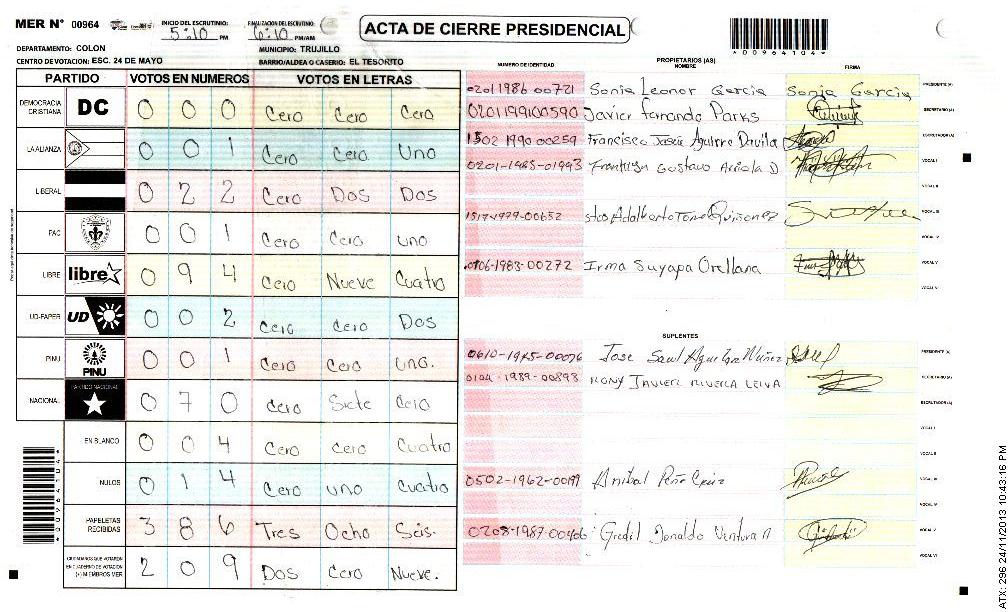 MER N° 00964
INICIO DEL ESCRUTINIO: 5:10 PM
FINALIZACION DEL ESCRUTINIO: 6:10 PM/AM
ACTA DE CIERRE PRESIDENCIAL
*00964104*
DEPARTAMENTO: COLON
MUNICIPIO: TRUJILLO
CENTRO DE VOTACION: ESC. 24 DE MAYO
BARRIO/ALDEA O CASERIO: EL TESORITO
PARTIDO VOTOS EN NUMEROS VOTOS EN LETRAS
DEMOCRACIA CRISTIANA DC 0 0 0 Cero Cero Cero
LA ALIANZA 0 0 1 Cero Cero Uno
LIBERAL 0 2 2 Cero Dos Dos
PAC 0 0 1 Cero Cero uno
LIBRE libre 0 9 4 Cero Nueve Cuatro
UD-FAPER UD 0 0 2 Cero Cero Dos
PINU PINU 0 0 1 Cero Cero uno.
NACIONAL PARTIDO NACIONAL 0 7 0 Cero Siete Cero
EN BLANCO 0 0 4 Cero cero Cuatro
NULOS 0 1 4 Cero uno Cuatro
PAPELETAS RECIBIDAS 3 8 6 Tres Ocho Seis.
CIUDADANOS QUE VOTARON EN CUADERNO DE VOTACION (+) MIEMBROS MER 2 0 9 Dos Cero Nueve.
*00964104*
PROPIETARIOS (AS)
NUMERO DE IDENTIDAD NOMBRE FIRMA
0201 1986 00721 Sonia Leonor Garcia Sonia Garcia PRESIDENTE (A)
0201199100590 Javier Fernando Parks SECRETARIO (A)
1502 1990 00259 Francisco Josue Aguirre Davila ESCRUTADOR (A)
0201-1985-01993 Franklyn Gustavo Arriola D VOCAL I
VOCAL II
1517-1979-00652 Adalberto Quiñonez VOCAL III
VOCAL IV
1983-00272 Irma Suyapa Orellana VOCAL V
VOCAL VI
SUPLENTES
0610-1965-00076 Jose Saul Nuñez PRESIDENTE (A)
0104-1989-00893 RONY JAVIER RIVERA LEIVA SECRETARIO (A)
ESCRUTADOR (A)
VOCAL I
VOCAL II
0502-1962- Anibal Peña Cruz VOCAL III
VOCAL IV
0208-1987-00406 Donaldo Ventura VOCAL V
VOCAL VI
ATX: 296 24/11/2013 10:43:16 PM